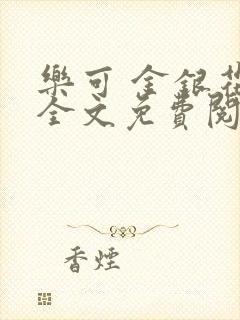 樂可 金銀花
全文免費閱
香煙